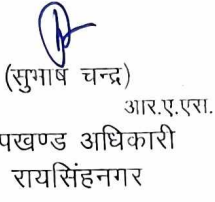 (सुभाष चन्द्र)
आर.ए.एस.
पखण्ड अधिकारी
रायसिंहनगर